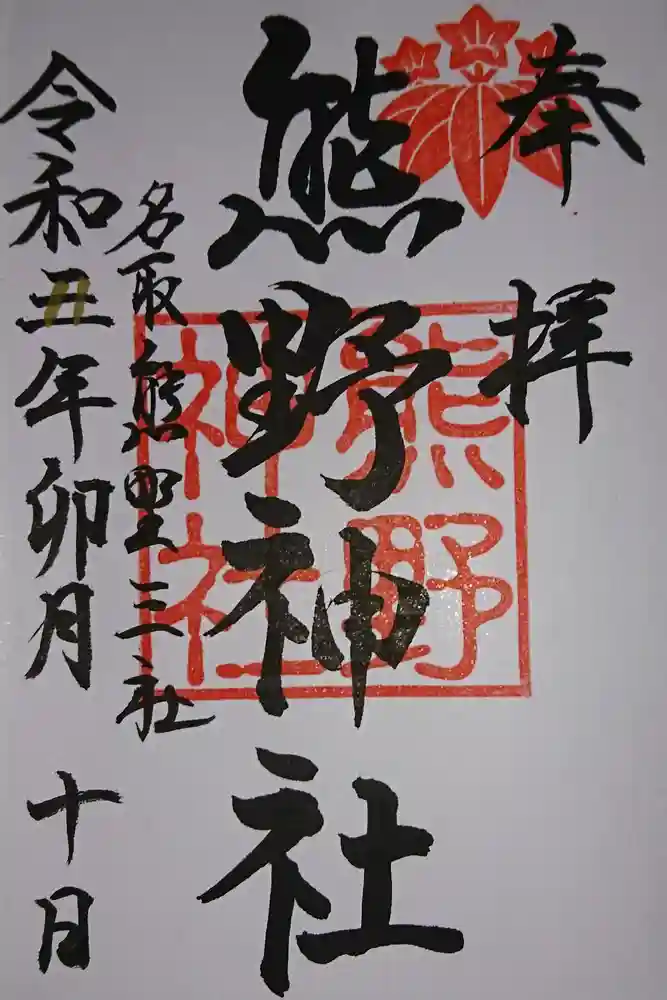 奉拝
熊野神社
熊野
神社
名取熊野三社
令和五年卯月十日